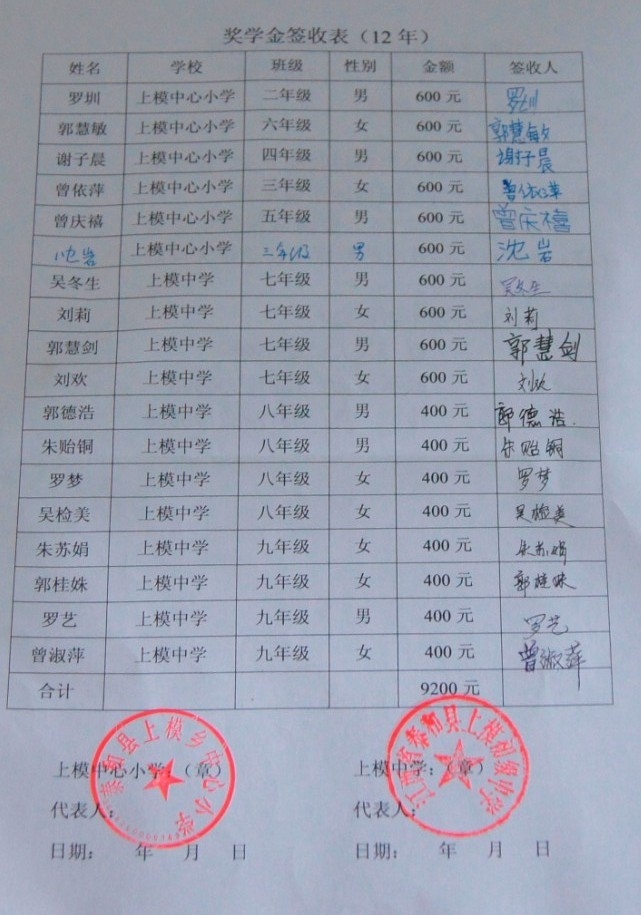 奖学金签收表（12 年）
姓名 学校 班级 性别 金额 签收人
罗圳 上模中心小学 二年级 男 600 元 罗圳
郭慧敏 上模中心小学 六年级 女 600 元 郭慧敏
谢子晨 上模中心小学 四年级 男 600 元 谢子晨
曾依萍 上模中心小学 三年级 女 600 元 曾依萍
曾庆禧 上模中心小学 五年级 男 600 元 曾庆禧
沈岩 上模中心小学 三年级 男 600 元 沈岩
吴冬生 上模中学 七年级 男 600 元 吴冬生
刘莉 上模中学 七年级 女 600 元 刘莉
郭慧剑 上模中学 七年级 男 600 元 郭慧剑
刘欢 上模中学 七年级 女 600 元 刘欢
郭德浩 上模中学 八年级 男 400 元 郭德浩.
朱贻铜 上模中学 八年级 男 400 元 朱贻铜
罗梦 上模中学 八年级 女 400 元 罗梦
吴检美 上模中学 八年级 女 400 元 吴检美
朱苏娟 上模中学 九年级 女 400 元 朱苏娟
郭桂妹 上模中学 九年级 女 400 元 郭桂妹
罗艺 上模中学 九年级 男 400 元 罗艺
曾淑萍 上模中学 九年级 女 400 元 曾淑萍
合计 9200 元
泰和县上模乡中心小学
江西省泰和县上模初级中学
上模中心小学：（章） 上模中学：（章）
代表人： 代表人：
日期： 年 月 日 日期： 年 月 日